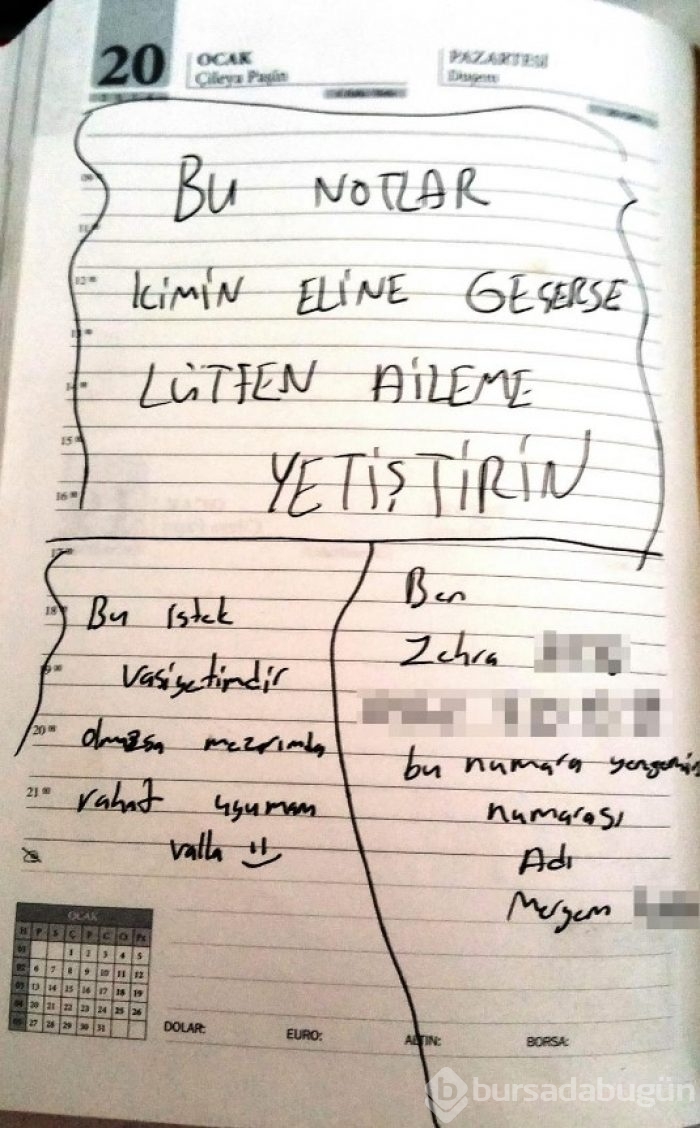 20
OCAK
PAZARTESİ
BU NOTLAR
KİMİN ELİNE GEÇERSE
LÜTFEN AİLEME
YETİŞTİRİN
12⁰⁰
15⁰⁰
16⁰⁰
18⁰⁰
20⁰⁰
21⁰⁰
Bu istek
vasiyetimdir
olmazsa mezarımda
rahat uyumam
valla
Ben
Zehra
bu numara yengemin
numarası
Adı
Meryem
OCAK
H P S Ç P C Ct Pz
01 1 2 3 4 5
02 6 7 8 9 10 11 12
03 13 14 15 16 17 18 19
04 20 21 22 23 24 25 26
05 27 28 29 30 31
DOLAR: EURO: ALTIN: BORSA:
b bursadabugün